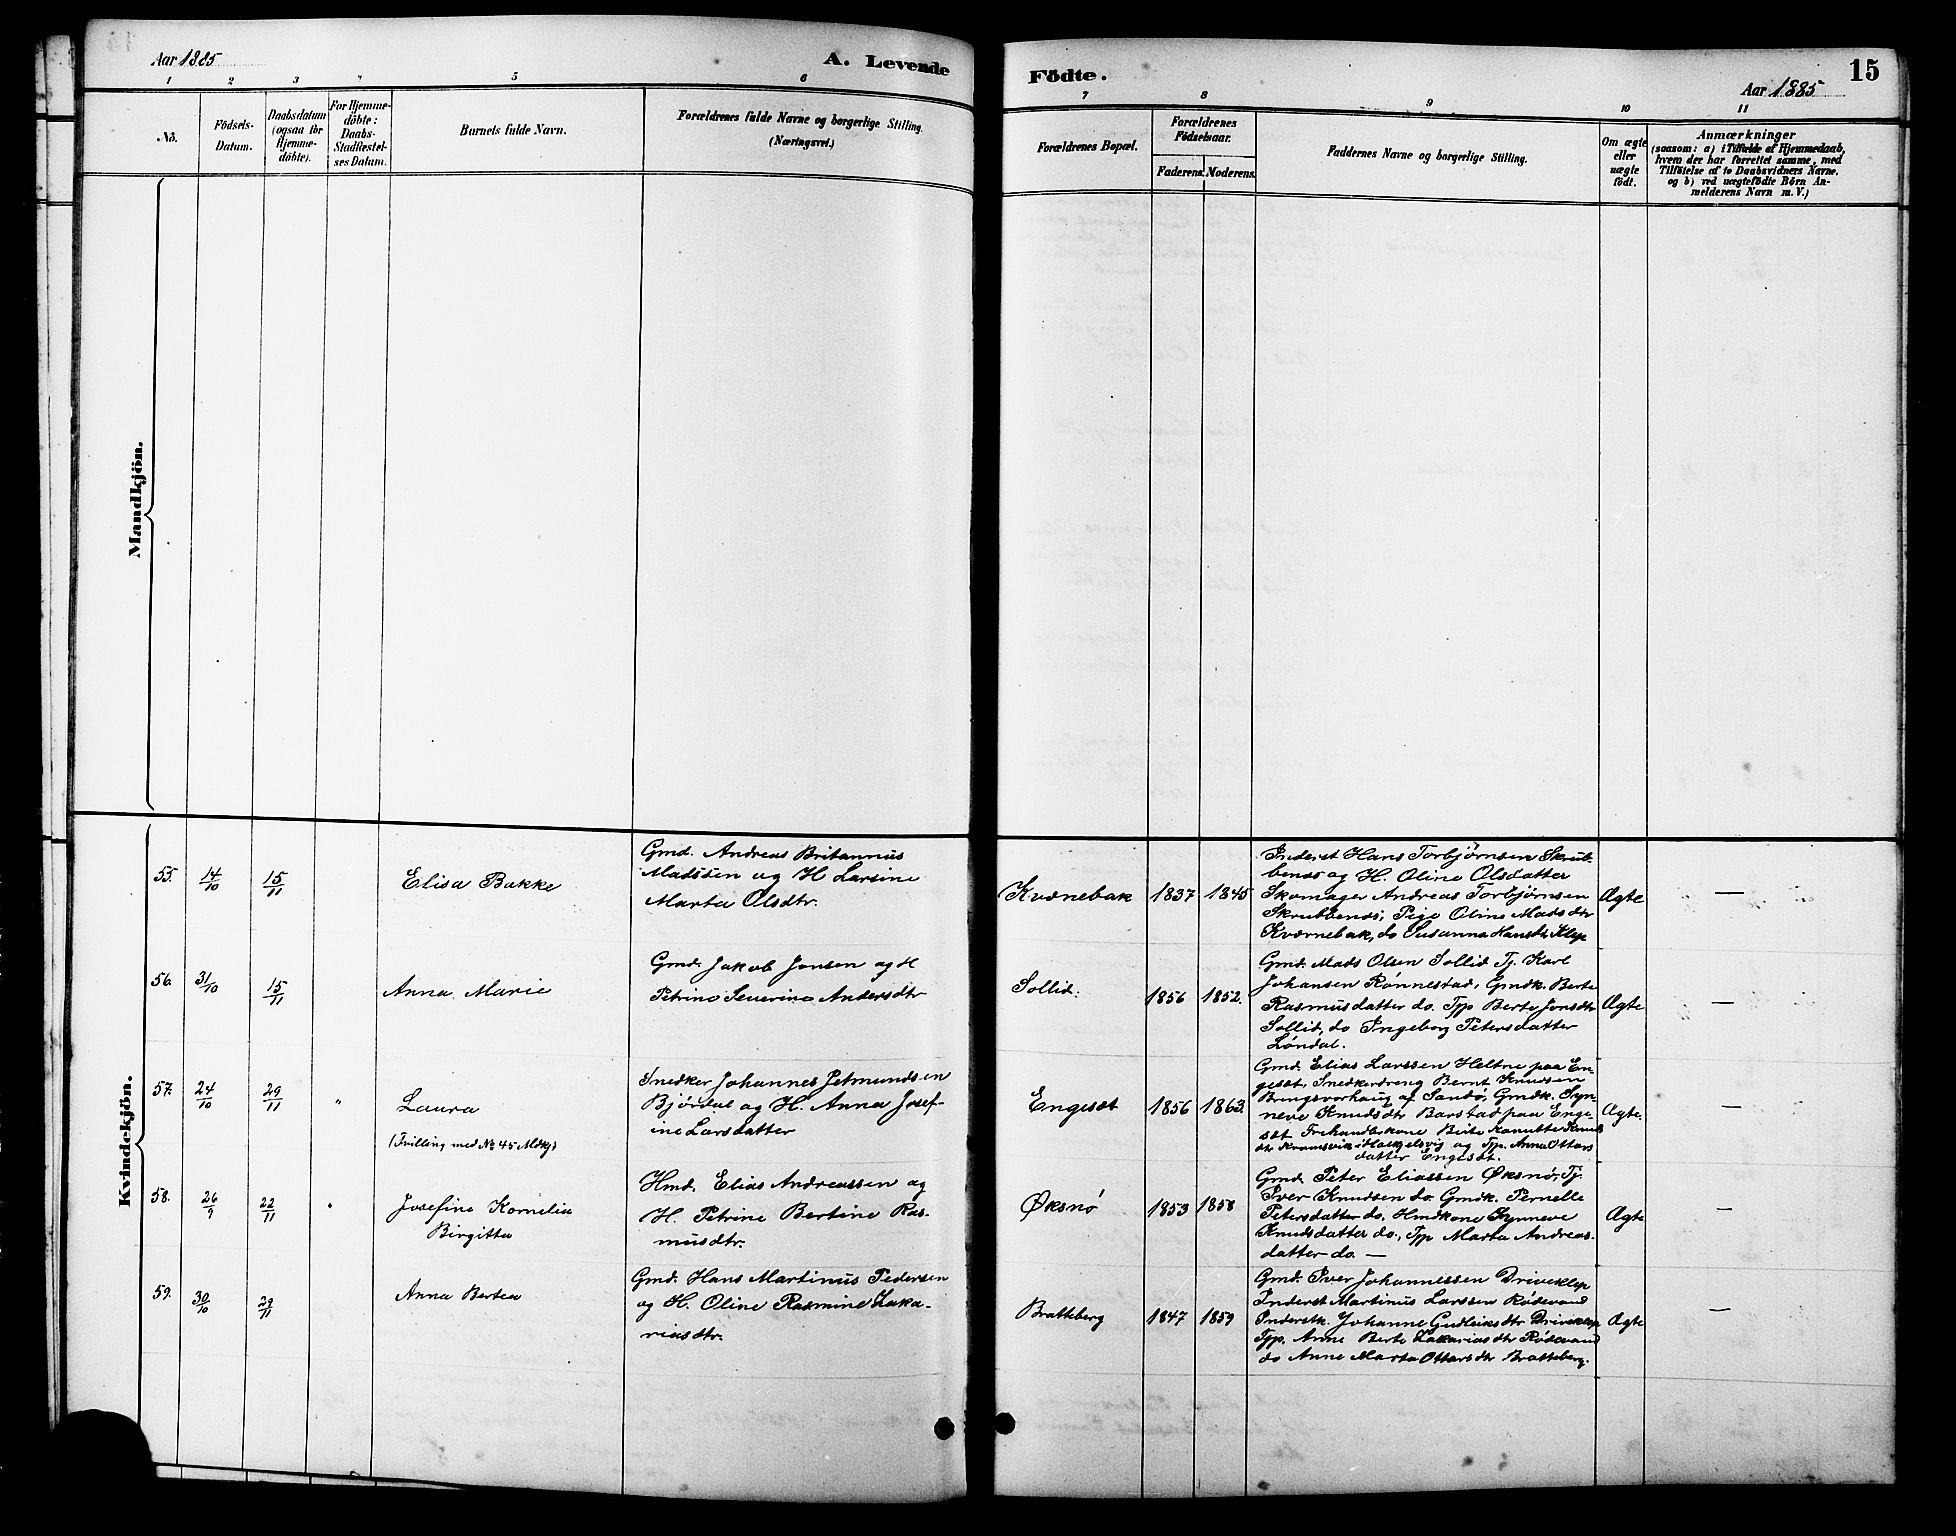 Aar 1885
A. Levende
1 2 3 5 6
No.
Födsels-Datum.
Daabsdatum (ogsaa for Hjemme-döbte).
For Hjemme-döbte: Daabs-Stadfestel-ses Datum.
Barnets fulde Navn.
Forældrenes fulde Navne og borgerlige Stilling.
(Næringsvei.)
Mandkjön.
Kvindekjön.
55. 14/10 15/11 Elisa Bakke
Gmd. Andreas Britannus
Madssen og H Larsine
Marta Olsdtr.
56. 31/10 15/11 Anna Marie
Gmd. Jakob Jonsen og H
Petrine Severine Andersdtr
57. 24/10 29/11 " Laura
(Tvilling med No 45 Mdkj)
Snedker Johannes Petmundsen
Bjørdal og H. Anna Josef-
ine Larsdatter
58. 26/9 22/11 " Josefine Kornelia
Birgitta
Hmd. Elias Andreassen og
H. Petrine Bertine Ras-
musdtr.
59. 30/10 29/11 Anna Bertea
Gmd. Hans Martinus Pedersen
og H. Oline Rasmine Zaka-
riasdtr.
Födte.
15
Aar 1885
7 8 9 10 11
Forældrenes Bopæl.
Forældrenes Födselsaar.
Faderens. Moderens.
Faddernes Navne og borgerlige Stilling.
Om ægte eller uægte födt.
Anmærkninger
(saasom: a) i Tilfælde af Hjemmedaab,
hvem der har forrettet samme, med
Tilföielse af to Daabsvidners Navne.
og b) ved uægtefödte Börn An-
melderens Navn m. V.)
Kværnebak 1837 1845
Inderst Hans Torbjørnsen Skrub-
benes og H. Oline Olsdatter
Skomager Andreas Torbjørnsen
Skrubbenes, Pige Oline Madsdtr
Kværnebak, do Susanna Hansdtr Klep
Ægte —
Sollid. 1856 1852.
Gmd. Mads Olsen Sollid Tj. Karl
Johansen Rønnestad, Gmdk. Berte
Rasmusdatter do. Tpp Berte Jonsdtr
Sollid, do Ingeborg Petersdatter
Løndal.
Ægte —
Engeset 1856 1863.
Gmd. Elias Larssen Heltne paa En-
geset, Snedkerdreng Bernt Knudsen
Bringsvorhaug af Sandø, Gmdk. Syn-
neve Knudsdtr Barstad paa Enge-
set Frihandlskone Beite Kanutte Knuds
dtr og Tpp. Anna Ottars
datter Engeset.
Ægte. —
Øksnø 1853 1858
Gmd. Peter Eliassen Øksnø, Tj.
Iver Knudsen do. Gmdk. Pernelle
Petersdatter do, Hmdkone Synneve
Knudsdatter do., Tpp Marta Andreas-
datter do. —
Ægte —
Bratteberg 1847 1859
Gmd. Iver Johannessen Driveklep
Inderst Martinus Larssen Rødevand
Inderstk. Johanne Gudleiksdtr Driveklep
Tpp. Anne Berte Zakariasdtr Rødevand
do Anne Marta Ottarsdtr Bratteberg.
Ægte —